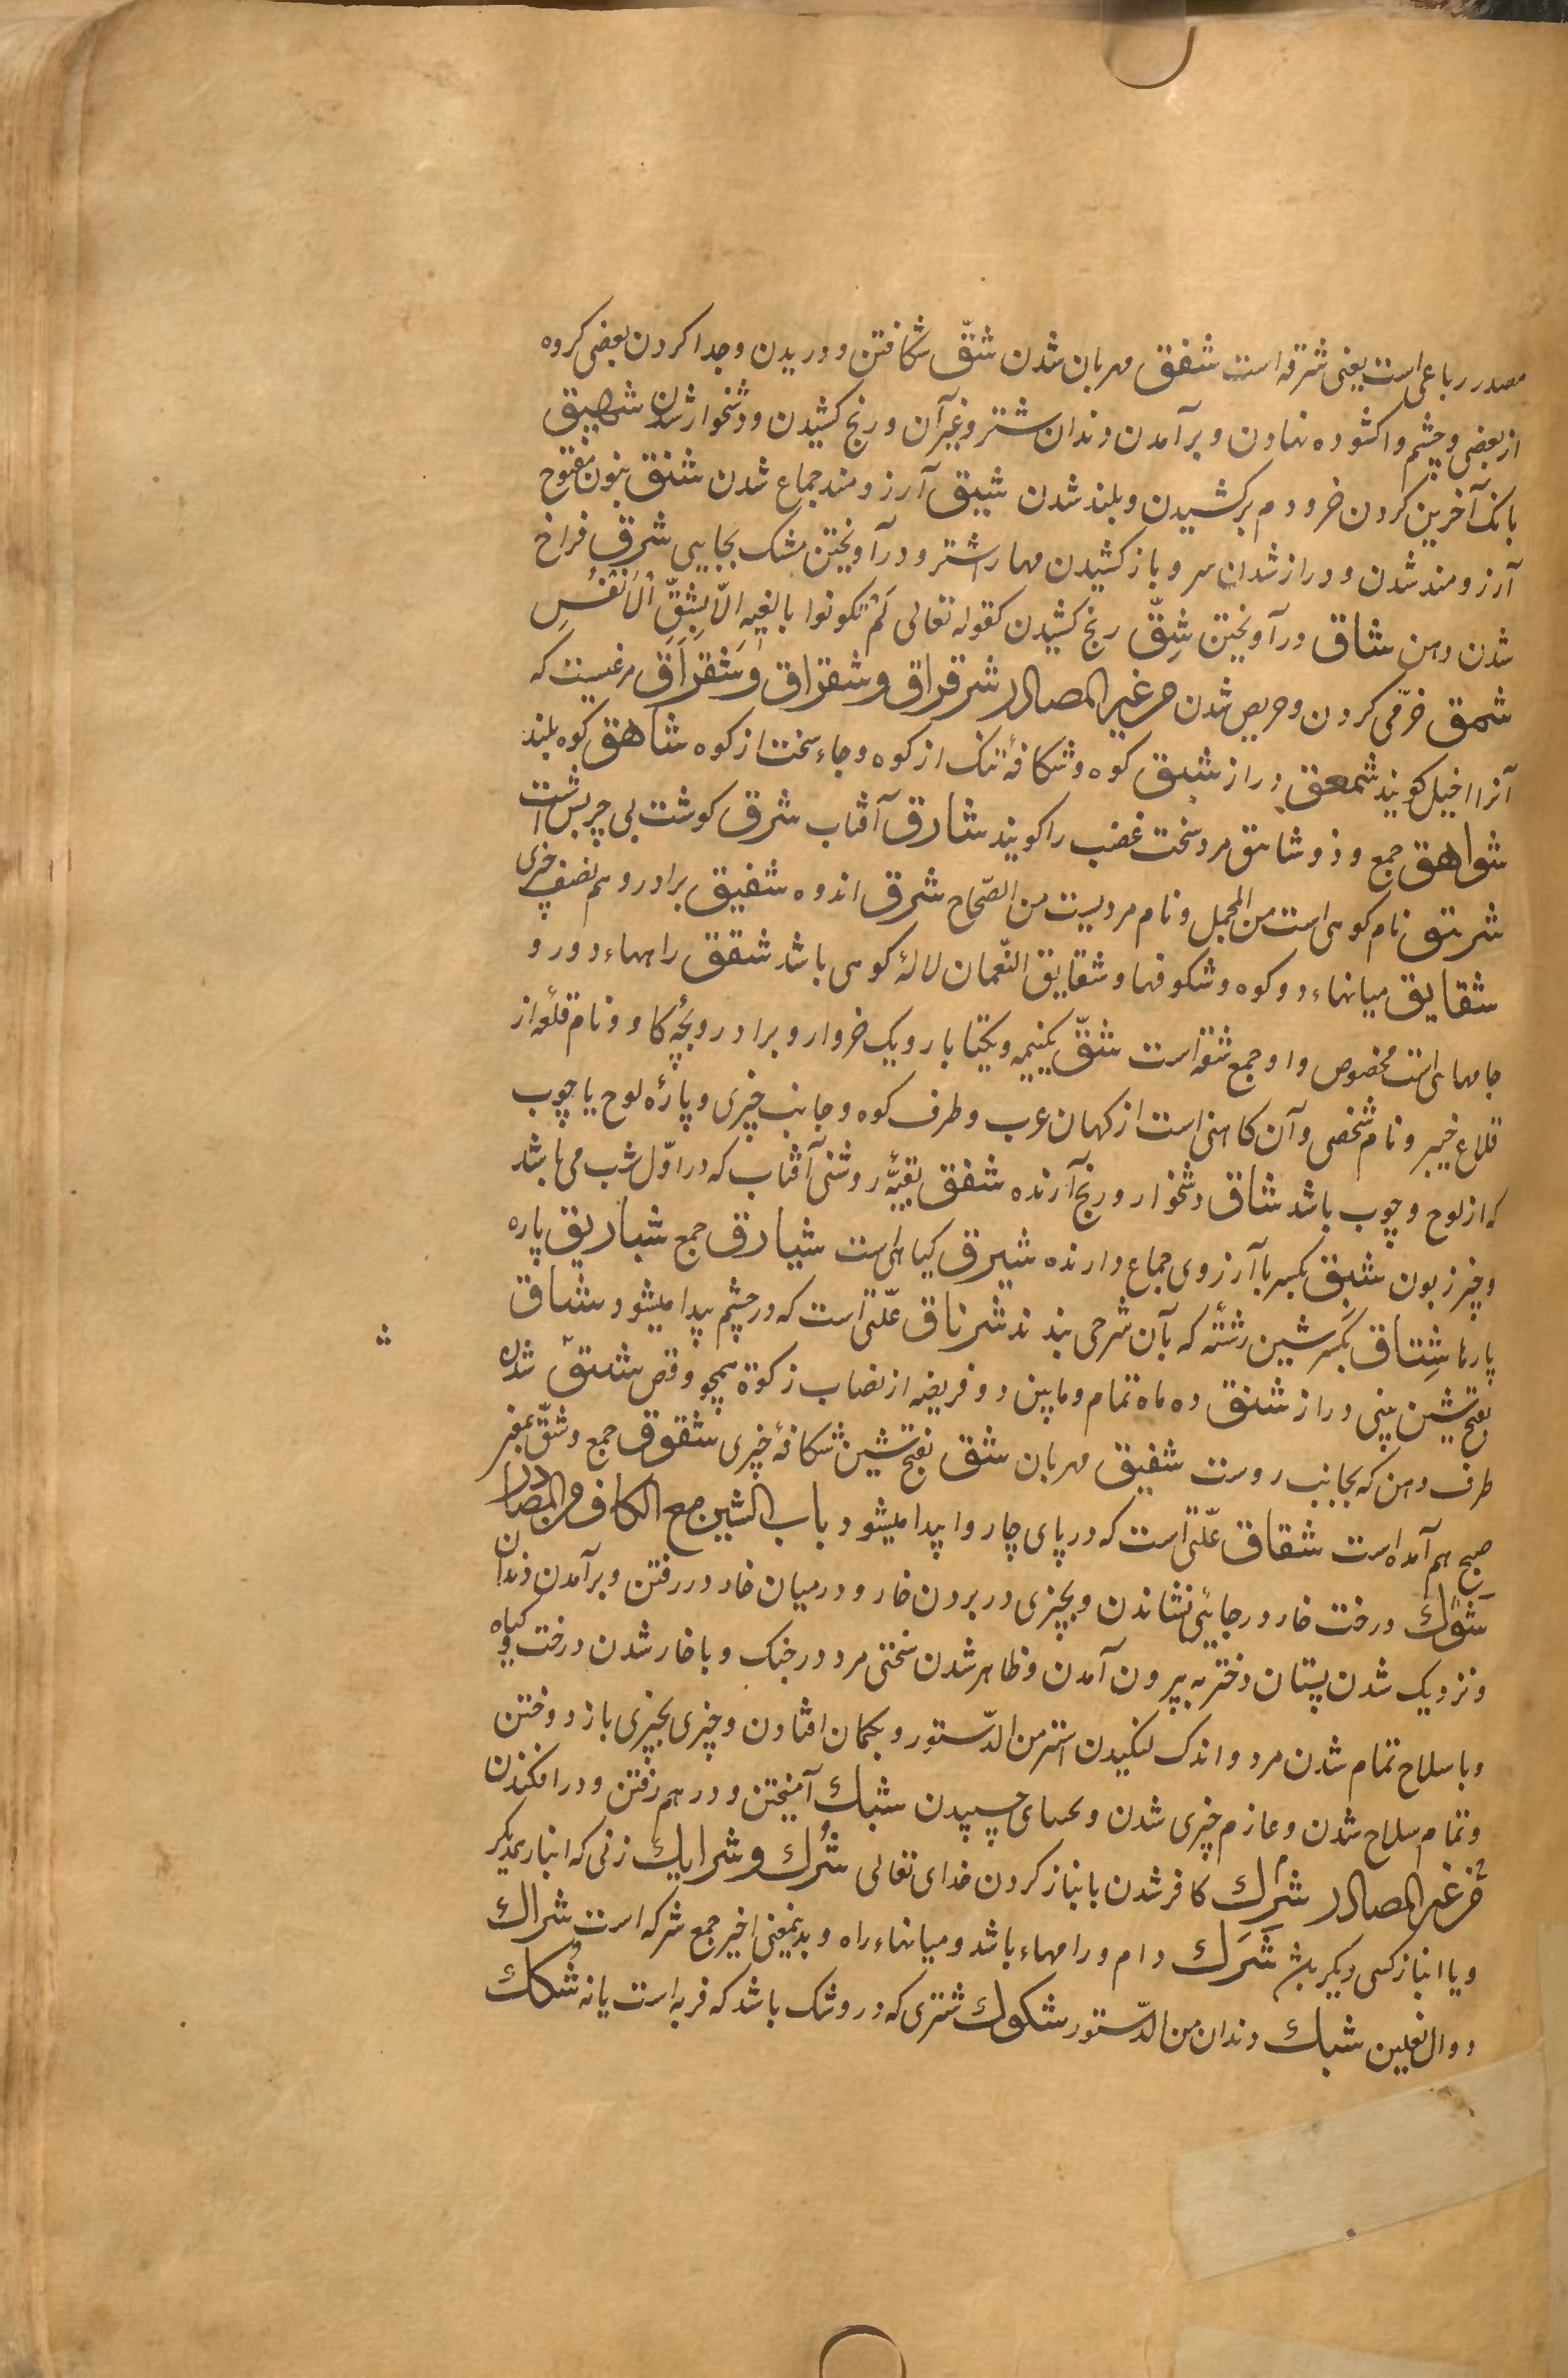 مصدر رباعی است یعنی شرقه است شفق مهربان شدن شقّ شکافتن و دریدن و جدا کردن بعضی کروه
از بعضی و چشم واکشوده نهادن و برآمدن دندان شتر و غیر آن و رنج کشیدن و دشخوار شدن شهیق
بانک آخرین کردن خر و دم برکشیدن و بلند شدن شبق آرزومند جماع شدن شنق بنون مفتوح
آرزومند شدن و دراز شدن سر و باز کشیدن مهار اشتر و درآویختن مشک بجایی شرق فراخ
شدن دهن شناق درآویختن شِقّ رنج کشیدن کقوله تعالی لَمْ تکونوا بالغیه الّا بِشِقِّ الْاَنْفُسِ
شمق خرّمی کردن و حریص شدن من غیر المصادر شرقراق و شقراق وَشَقَرَاق مرغیست که
آنرا اخیل کویند شمعق دراز شیق کوه و شکافهٔ تنک از کوه و جاء سخت از کوه شاهق کوه بلند
شواهق جمع و ذو شاهق مرد سخت غضب را کویند شارق آفتاب شرق کوشت بی چربش است
شریق نام کوهی است من المجمل و نام مردیست من الصّحاح شرق اندوه شقیق برادر و هم نصف چیزی
شقایق میانهاء دو کوه و شکوفها و شقایق النّعمان لالهٔ کوهی باشد شقق راههاء دور و
جامهائی است مخصوص و او جمع شقه است شقّ یکنیمه و یکتا بار و یک خروار و برادر و بچّهٔ کاو و نام قلعه از
قلاع خیبر و نام شخصی و آن کاهنی است از کهان عرب و طرف کوه و جانب چیزی و پارهٔ لوح یا چوب
که از لوح و چوب باشد شاق دشخوار و رنج آرنده شفق بقیّهٔ روشنی آفتاب که در اوّل شب می باشد
و چیز زبون شبق بکسر با آرزوی جماع دارنده شبرق کیاهی است شبارق جمع شباریق پاره
پارها شِناق بکسر شین رشته که بآن سر خی بندند شرناق علّتی است که در چشم پیدا میشود شناق
بفتح شین بینی دراز شنق ده ماه تمام و مابین دو فریضه از نصاب زکوة همچو وقص شدق شده
طرف دهن که بجانب روست شفیق مهربان شق بفتح شین شکافهٔ چیزی شقوق جمع و شقّ بمعنی
صبح هم آمده است شقاق علّتی است که در پای چاروا پیدا میشود باب الشین مع الکاف من المصادر
شوك درخت خار در جائی نشاندن و بچیزی در بردن خار و در میان خار در رفتن و برآمدن دندان
و نزدیک شدن پستان دختر به بیرون آمدن و ظاهر شدن سختی مرد در جنک و با خار شدن درخت و کیاه
و با سلاح تمام شدن مرد و اندک لنکیدن اشتر من الدّستور و بکمان افتادن و چیزی بچیزی باز دوختن
و تمام سلاح شدن و عازم چیزی شدن و چسپیدن شبك آمیختن و در هم رفتن و در افکندن
من غیر المصادر شِرك کافر شدن بانباز کردن خدای تعالی شُرك و شرایك زنی که انبار یکدیکر
و یا انباز کسی دیکر باشد شَرَك دام و رامهاء باشد و میانهاء راه و بدینمعنی اخیر جمع شرکه است شراك
دوال نعلین شبك دندان من الدّستور شکوك شتری که در و شک باشد که فربه است یا نه شُکاك